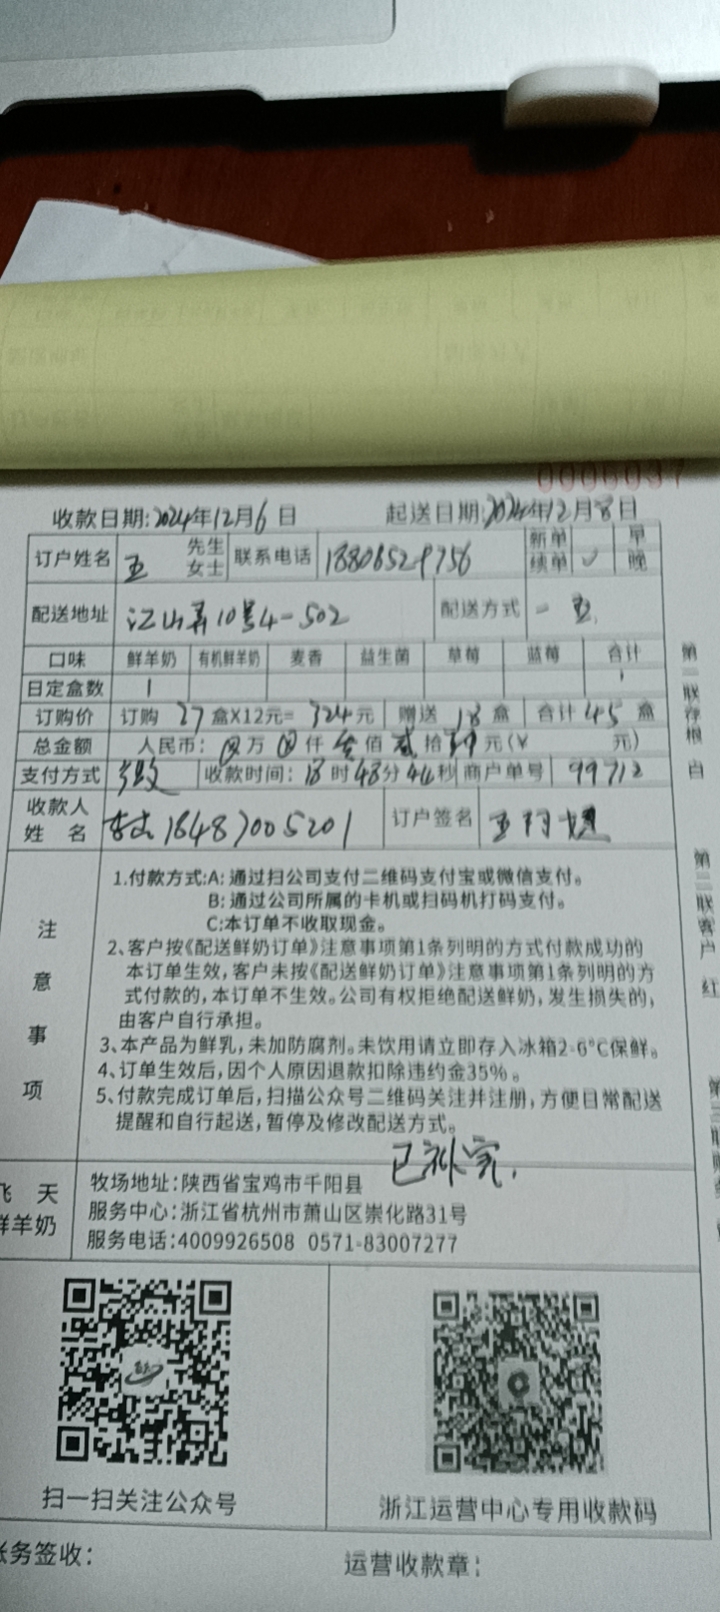 0006037
收款日期:2024年12月6日 起送日期:2024年12月8日
订户姓名 王 先生 女士 联系电话 18806529756 新单 续单 ✓ 早 晚
配送地址 江山弄10号4-502 配送方式 一 五
口味 鲜羊奶 有机鲜羊奶 麦香 益生菌 草莓 蓝莓 合计
日定盒数 1 1
订购价 订购 27 盒X12元= 324 元 赠送 18 盒 合计 45 盒
总金额 人民币: 万 仟 叁 佰 贰 拾 元(¥ 元)
支付方式 收款时间: 18 时 48 分 44 秒 商户单号 99712
收款人 姓 名 18487005201 订户签名 王
注意事项
1.付款方式:A: 通过扫公司支付二维码支付宝或微信支付。
B: 通过公司所属的卡机或扫码机打码支付。
C:本订单不收取现金。
2、客户按《配送鲜奶订单》注意事项第1条列明的方式付款成功的
本订单生效,客户未按《配送鲜奶订单》注意事项第1条列明的方
式付款的,本订单不生效。公司有权拒绝配送鲜奶,发生损失的,
由客户自行承担。
3、本产品为鲜乳,未加防腐剂。未饮用请立即存入冰箱2-6°C保鲜。
4、订单生效后,因个人原因退款扣除违约金35%。
5、付款完成订单后,扫描公众号二维码关注并注册,方便日常配送
提醒和自行起送,暂停及修改配送方式。
已补完.
飞天
鲜羊奶
牧场地址:陕西省宝鸡市千阳县
服务中心:浙江省杭州市萧山区崇化路31号
服务电话:4009926508 0571-83007277
扫一扫关注公众号 浙江运营中心专用收款码
账务签收: 运营收款章:
第一联存根 白
第二联客户 红